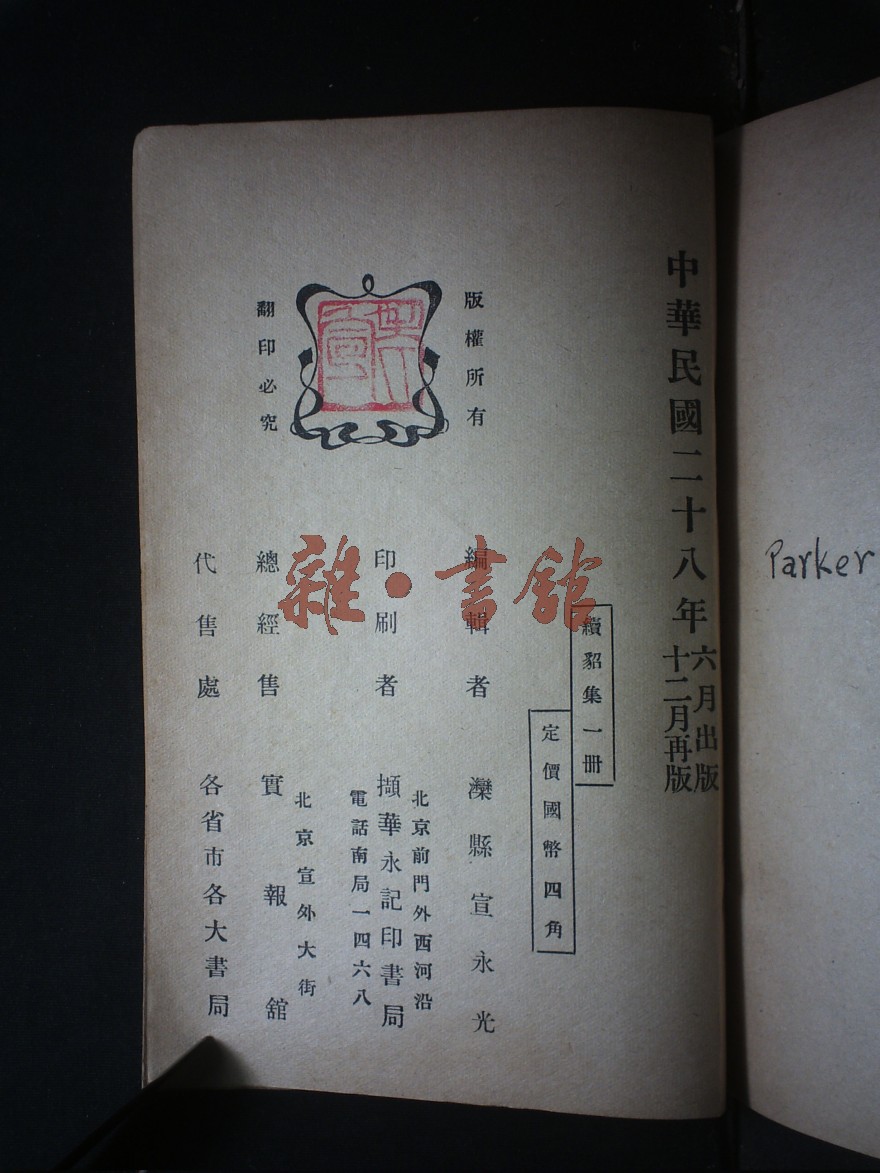 中華民國二十八年
六月出版
十二月再版
續貂集一冊
定價國幣四角
版權所有
翻印必究
編輯者 灤縣宣永光
北京前門外西河沿
印刷者 擷華永記印書局
電話南局一四六八
北京宣外大街
總經售 實報館
代售處 各省市各大書局
雜·書館
Parker